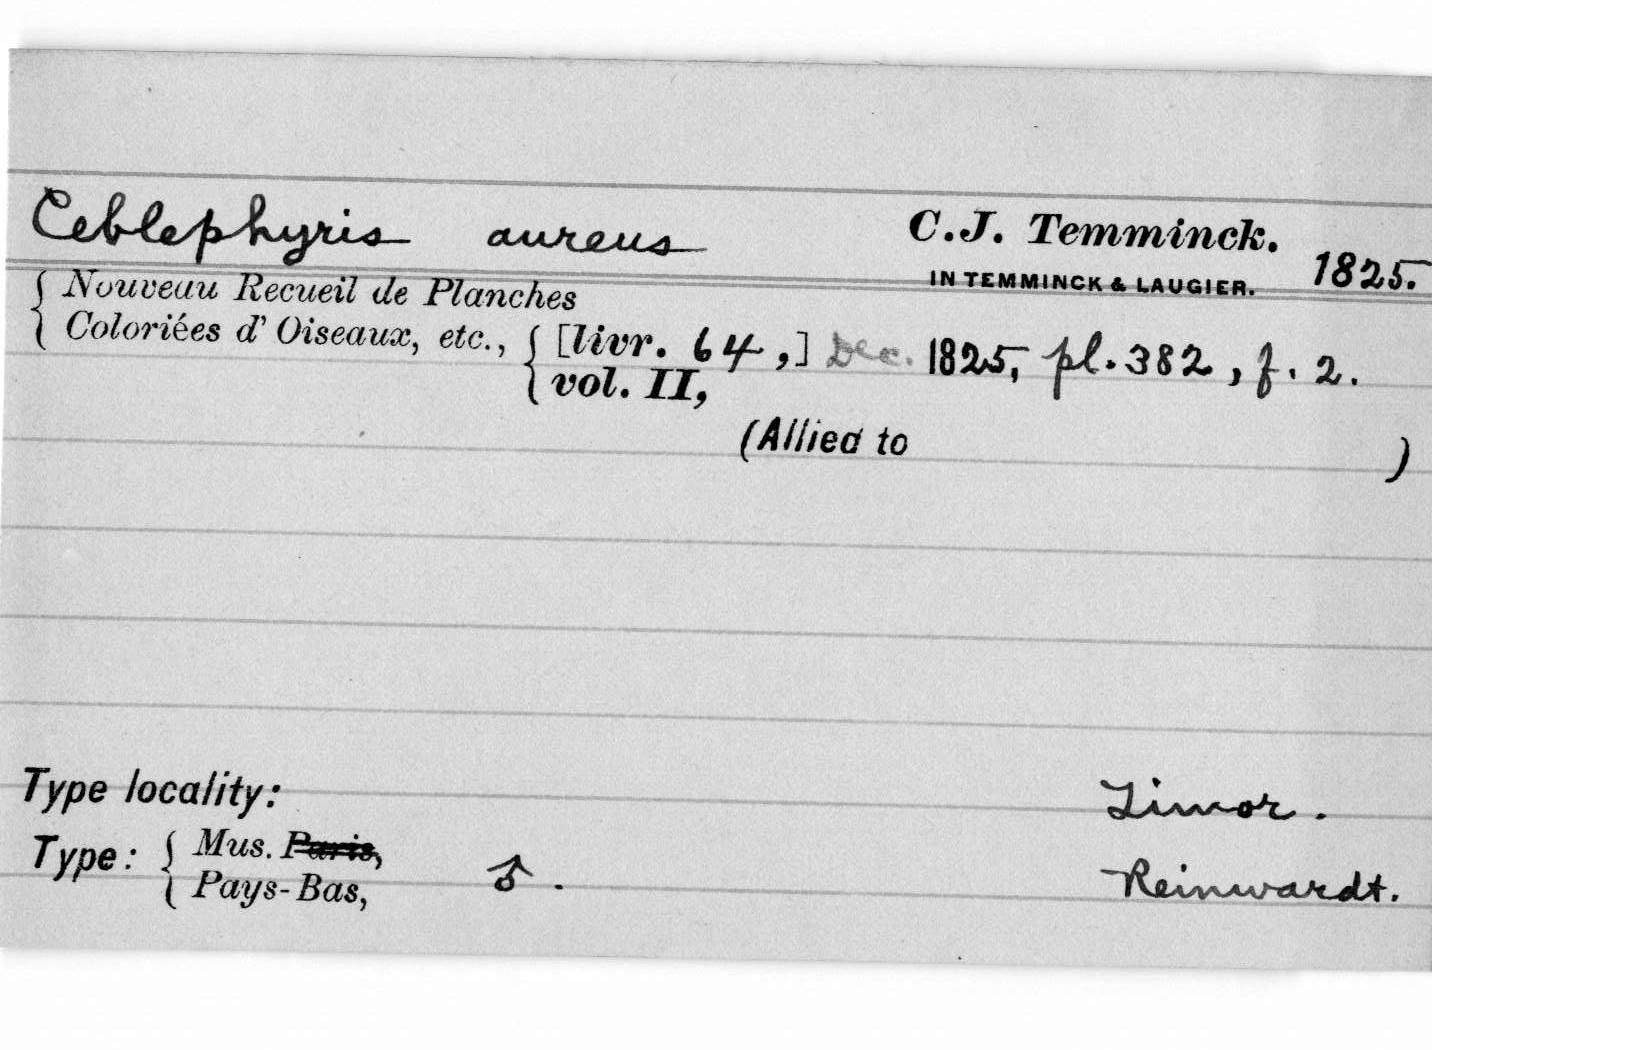 Ceblephyris aureus C.J. Temminck.
IN TEMMINCK & LAUGIER. 1825.
Nouveau Recueil de Planches
Coloriées d' Oiseaux, etc., [livr. 64,] Dec. 1825, pl. 382, f. 2.
vol. II,
(Allied to )
Type locality: Timor.
Type: Mus. Paris,
Pays-Bas, ♂. Reinwardt.